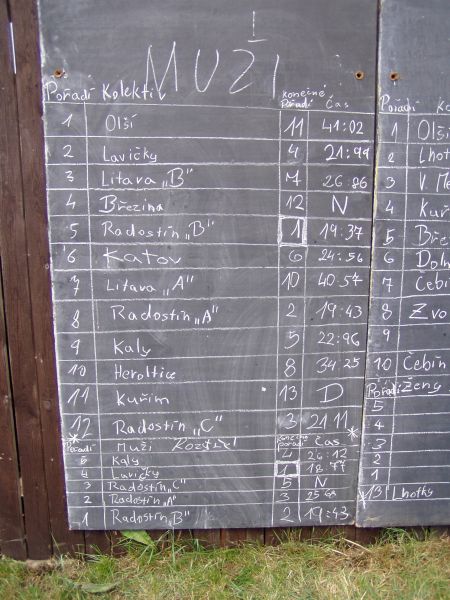 MUŽI
Pořadí Kolektiv konečné Pořadí čas
1 Olší 11 41:02
2 Lavičky 4 21:99
3 Litava „B" 7 26:86
4 Březina 12 N
5 Radostín „B" 1 19:37
6 Katov 6 24:56
7 Litava „A" 10 40:57
8 Radostín „A" 2 19:43
9 Kaly 5 22:96
10 Heroltice 8 34:25
11 Kuřim 13 D
12 Radostín „C" 3 21:11
Pořadí Muži Rozstřel Konečné pořadí čas
5 Kaly 4 26:12
4 Lavičky 1 18:77
3 Radostín „C" 5 N
2 Radostín „A" 3 25:68
1 Radostín „B" 2 19:43
Pořadí Ko
1 Olší
2 Lhot
3 V. Me
4 Kuř
5 Bře
6 Doln
7 Čebí
8 Zvo
9
10 Čebín
Pořadí ženy
5
4
3
2
1
13 Lhotky